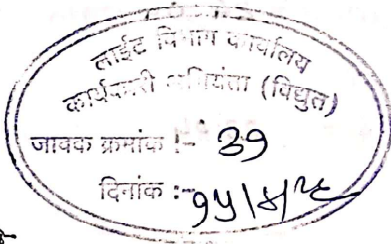 लाईट विभाग कार्यालय
कार्यकारी अभियंता (विद्युत)
जावक क्रमांक :- 39
दिनांक :- १५/४/२६